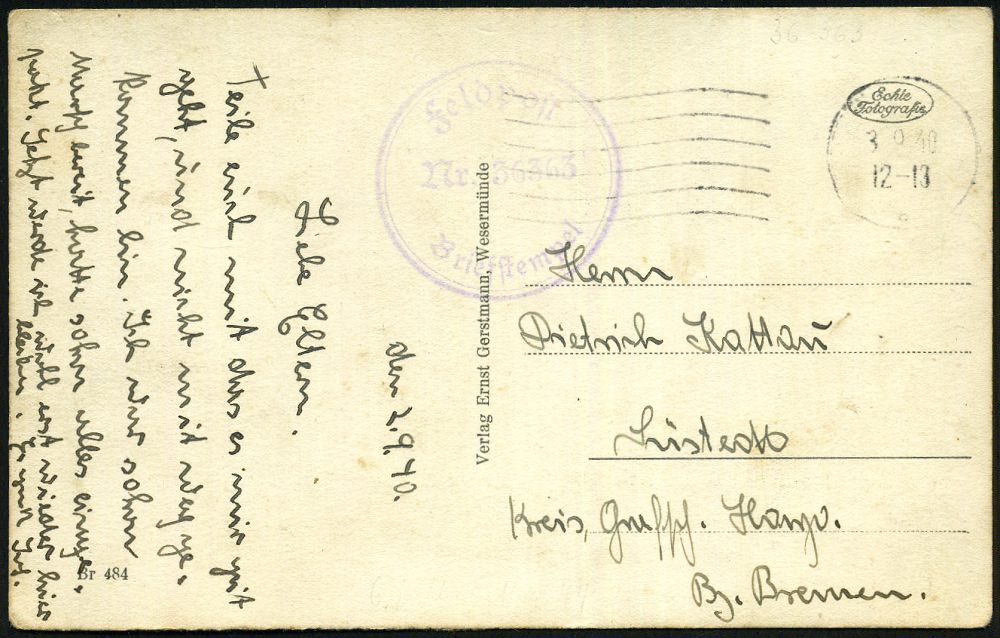 36 363
Echte
Fotografie
3 9 40
12-13
Feldpost
Nr. 36363
Briefstempel
den 2.9.40.
Liebe Eltern.
Teile euch mit das es mir gut
geht, und nicht mit weg ge-
kommen bin. Ich war schon
bereit, hatte schon alles einge-
packt. Jetzt werde ich wohl erst wieder hier
bleiben. Es grüßt
Br 484
Verlag Ernst Gerstmann, Wesermünde
Herrn
Dietrich Kattau
Lüstedt
Kreis, Grafsch. Hoya.
Bz. Bremen.